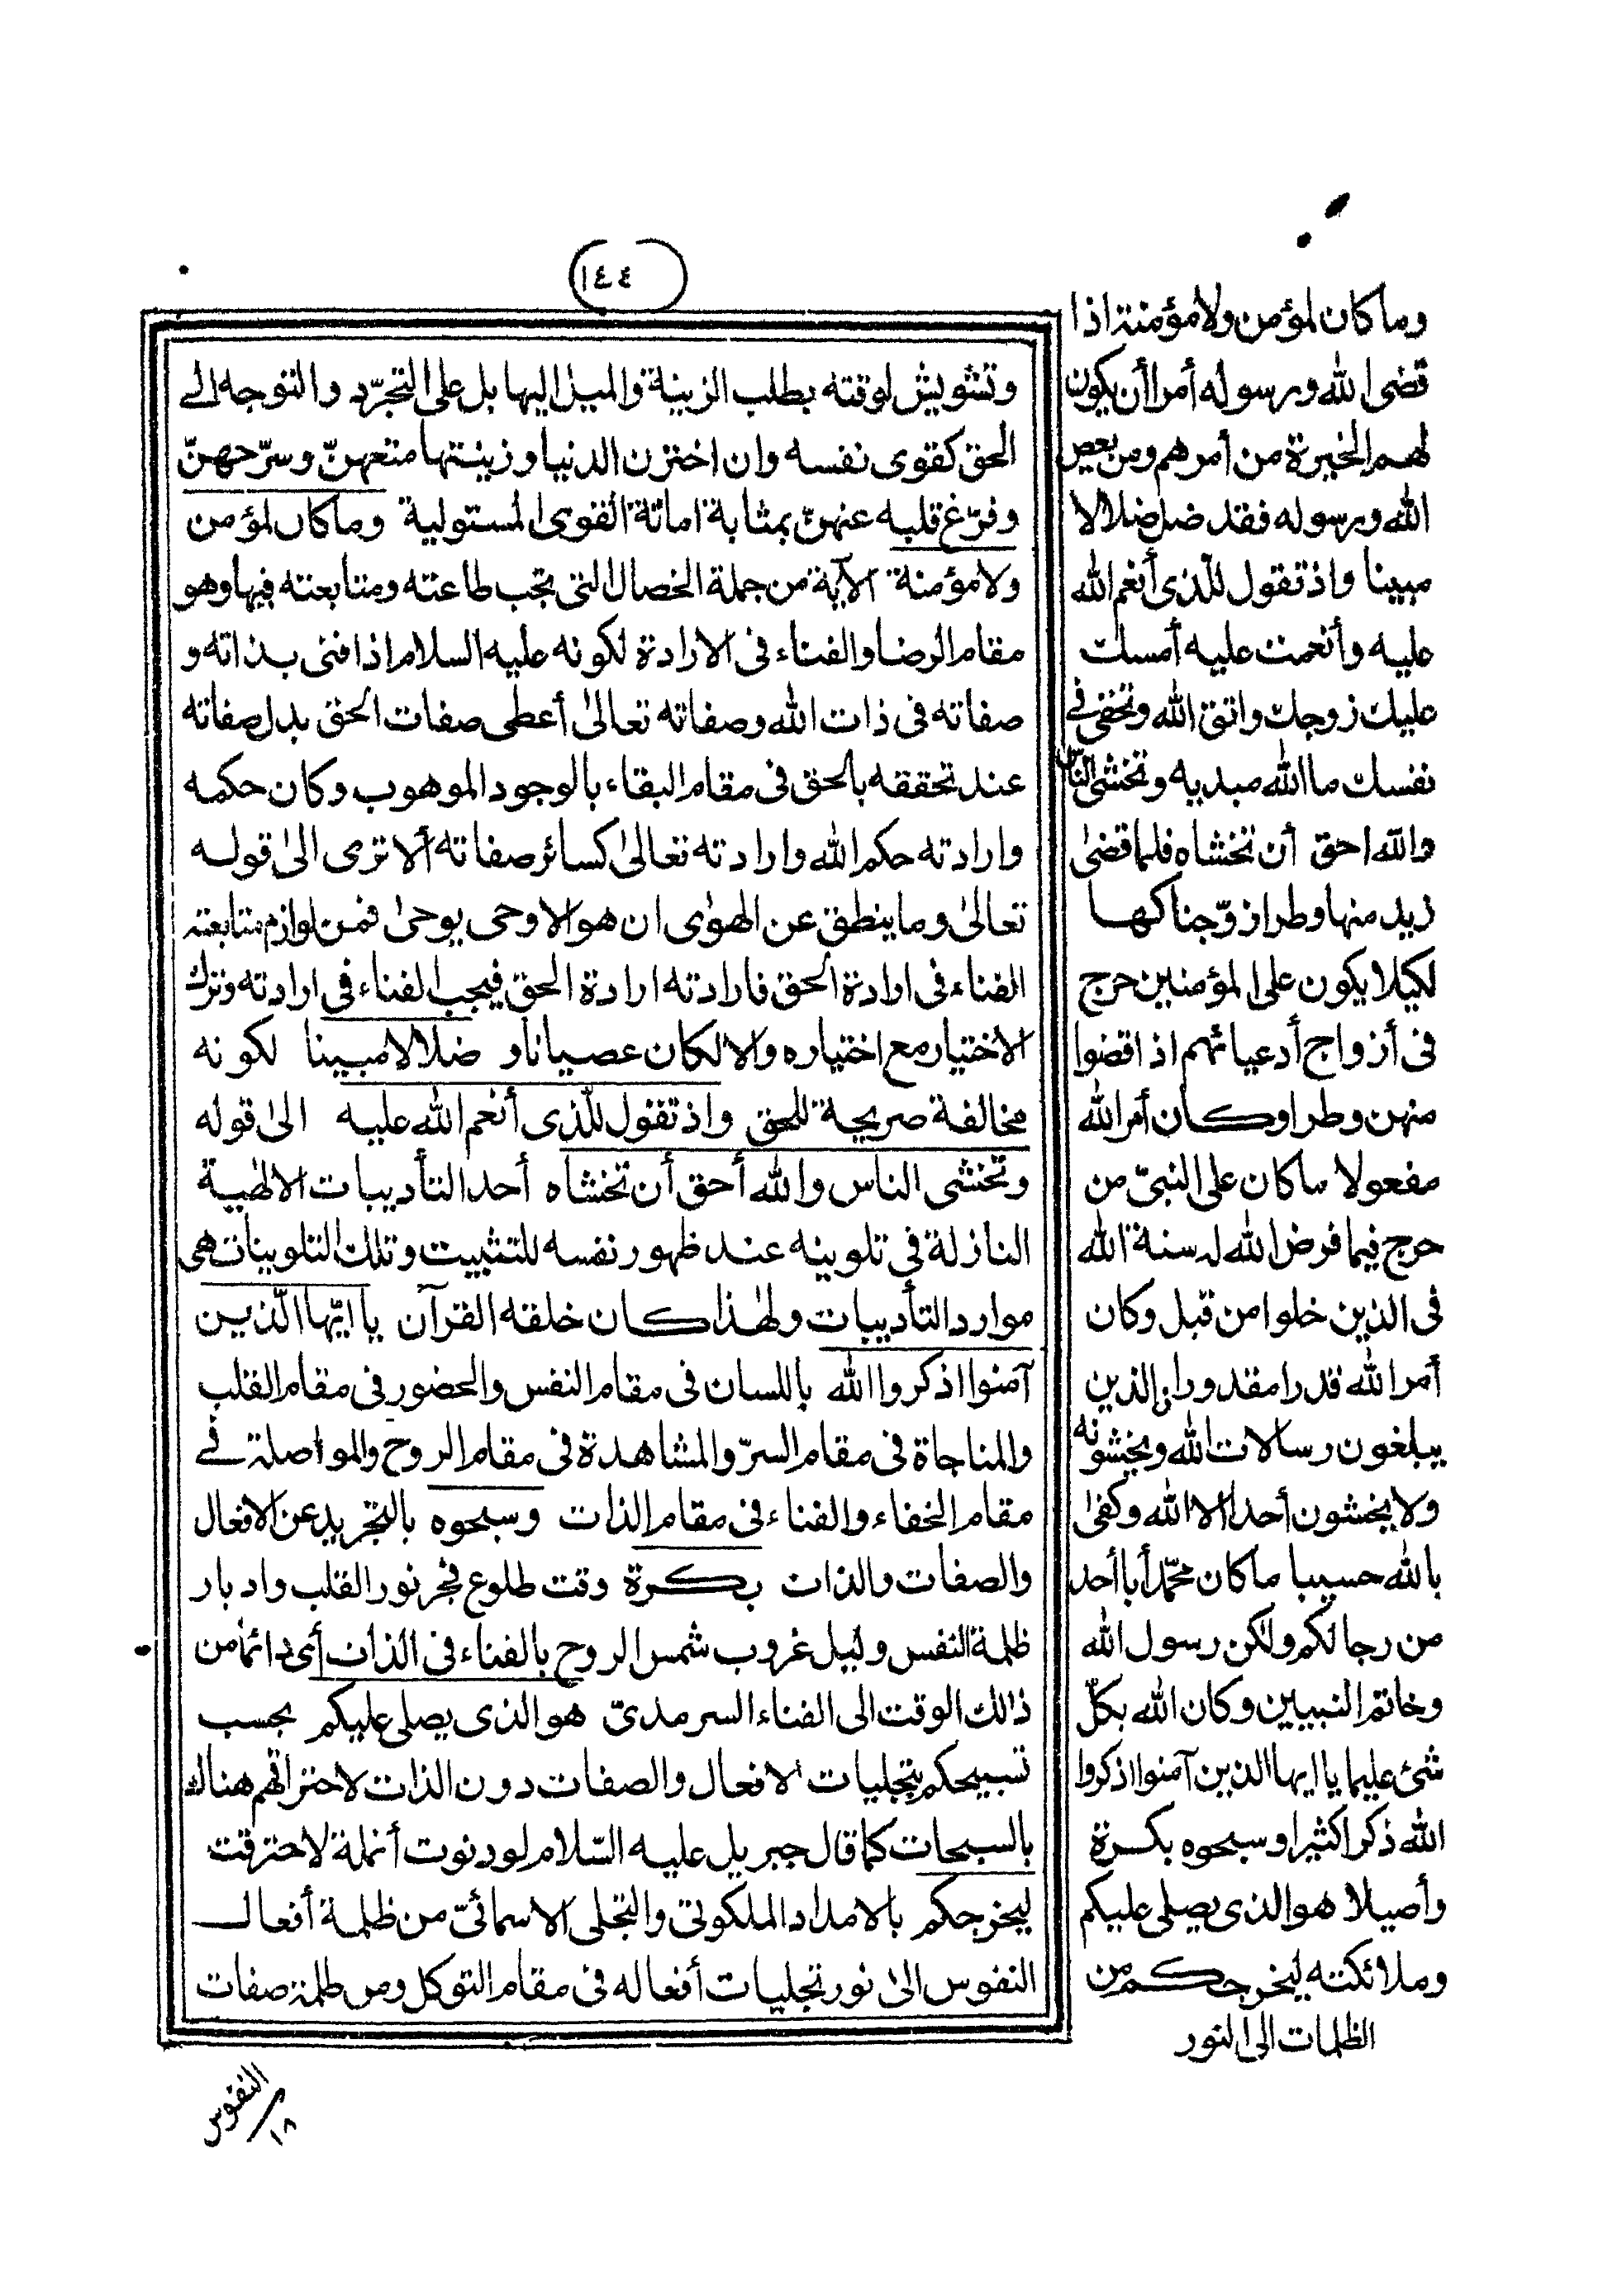 ١٤٤
وما كان لمؤمن ولا مؤمنة اذا
قضى الله ورسوله أمرا أن يكون
لهم الخيرة من أمرهم ومن يعص
الله ورسوله فقد ضل ضلالا
مبينا واذ تقول للذى أنعم الله
عليه وأنعمت عليه أمسك
عليك زوجك واتق الله وتخفى فى
نفسك ما الله مبديه وتخشى الناس
والله احق أن تخشاه فلما قضىٰ
زيد منها وطرا زوّجناكها
لكيلا يكون على المؤمنين حرج
فى أزواج أدعيائهم اذا قضوا
منهن وطرا وكان أمر الله
مفعولا ما كان على النبىّ من
حرج فيما فرض الله له سنة الله
فى الذين خلوا من قبل وكان
أمر الله قدرا مقدورا ن الذين
يبلغون رسالات الله ويخشونه
ولا يخشون أحدا الا الله وكفىٰ
بالله حسيبا ما كان محمّد أبا أحد
من رجالكم ولٰكن رسول الله
وخاتم النبيين وكان الله بكلّ
شئ عليما يا ايها الذين آمنوا اذكروا
الله ذكرا كثيرا وسبحوه بكرة
وأصيلا هو الذى يصلى عليكم
وملائكته ليخرجكم من
الظلمات الى النور
وتشويش لوقته بطلب الزينة والميل اليها بل على التجرّد والتوجه الى
الحق كقوى نفسه وان اخترن الدنيا وزينتها متعهنّ وسرّحهنّ
وفرّغ قلبه عنهنّ بمثابة اماتة القوى المستولية وما كان لمؤمن
ولا مؤمنة الآية من جملة الخصال التى تجب طاعته ومتابعته فيها وهو
مقام الرضا والفناء فى الارادة لكونه عليه السلام اذا فنى بذاته و
صفاته فى ذات الله وصفاته تعالىٰ أعطى صفات الحق بدل صفاته
عند تحققه بالحق فى مقام البقاء بالوجود الموهوب وكان حكمه
وارادته حكم الله وارادته تعالىٰ كسائر صفاته ألا ترى الىٰ قوله
تعالىٰ وما ينطق عن الهوٰى ان هو الا وحى يوحىٰ فمن لوازم متابعته
الفناء فى ارادة الحق فارادته ارادة الحق فيجب الفناء فى ارادته وترك
الاختيار مع اختياره والا لكان عصيانا و ضلالا مبينا لكونه
مخالفة صريحة للحق واذ تقول للّذى أنعم الله عليه الىٰ قوله
وتخشى الناس والله أحق أن تخشاه أحد التأديبات الالهٰية
النازلة فى تلوينه عند ظهور نفسه للتثبيت وتلك التلوينات هى
موارد التأديبات ولهٰذا كان خلقه القرآن يا ايّها الّذين
آمنوا اذكروا الله باللسان فى مقام النفس والحضور فى مقام القلب
والمناجاة فى مقام السرّ والمشاهدة فى مقام الروح والمواصلة فى
مقام الخفاء والفناء فى مقام الذات وسبحوه بالتجريد عن الافعال
والصفات والذات بكرة وقت طلوع فجر نور القلب وادبار
ظلمة النفس وليل غروب شمس الروح بالفناء فى الذات أى دائما من
ذٰلك الوقت الى الفناء السرمدىّ هو الذى يصلى عليكم بحسب
تسبيحكم بتجليات الافعال والصفات دون الذات لاحتراقهم هناك
بالسبحات كما قال جبريل عليه السّلام لو دنوت أنملة لاحترقت
ليخرجكم بالامداد الملكوتى والتجلى الاسمائىّ من ظلمة أفعال
النفوس الىٰ نور تجليات أفعاله فى مقام التوكل ومن ظلمة صفات
النفوس
١٨